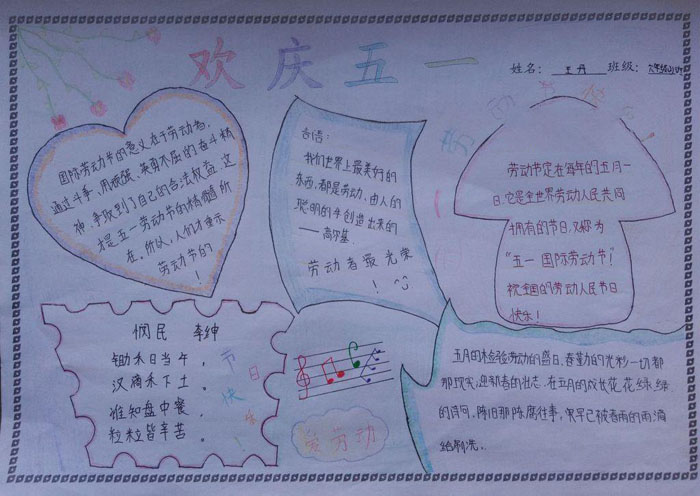 欢庆五一
姓名： 王丹 班级：
国际劳动节的意义在于劳动者，
通过斗争，用顽强、英勇不屈的奋斗精
神，争取到了自己的合法权益，这
才是五一劳动节的精髓所
在，所以，人们才重示
劳动节的
！
名语：
我们世界上最美好的
东西，都是劳动，由人的
聪明的手创造出来的
——高尔基
劳动者最光荣
！
劳动节定在每年的五月一
日，它是全世界劳动人民共同
拥有的节日，又称为
“五一国际劳动节！”
祝全国的劳动人民节日
快乐！
悯民 李绅
锄禾日当午，
汗滴禾下土。
谁知盘中餐，
粒粒皆辛苦。
节
日
快
乐
！
爱劳动
五月的检验劳动的盛日，春勤的光彩一切都
那现实，迎新春的壮志，在五月的成长花，花绿绿
的诗句，陈旧那陈腐往事，早已被春雨的雨滴
给刷洗。